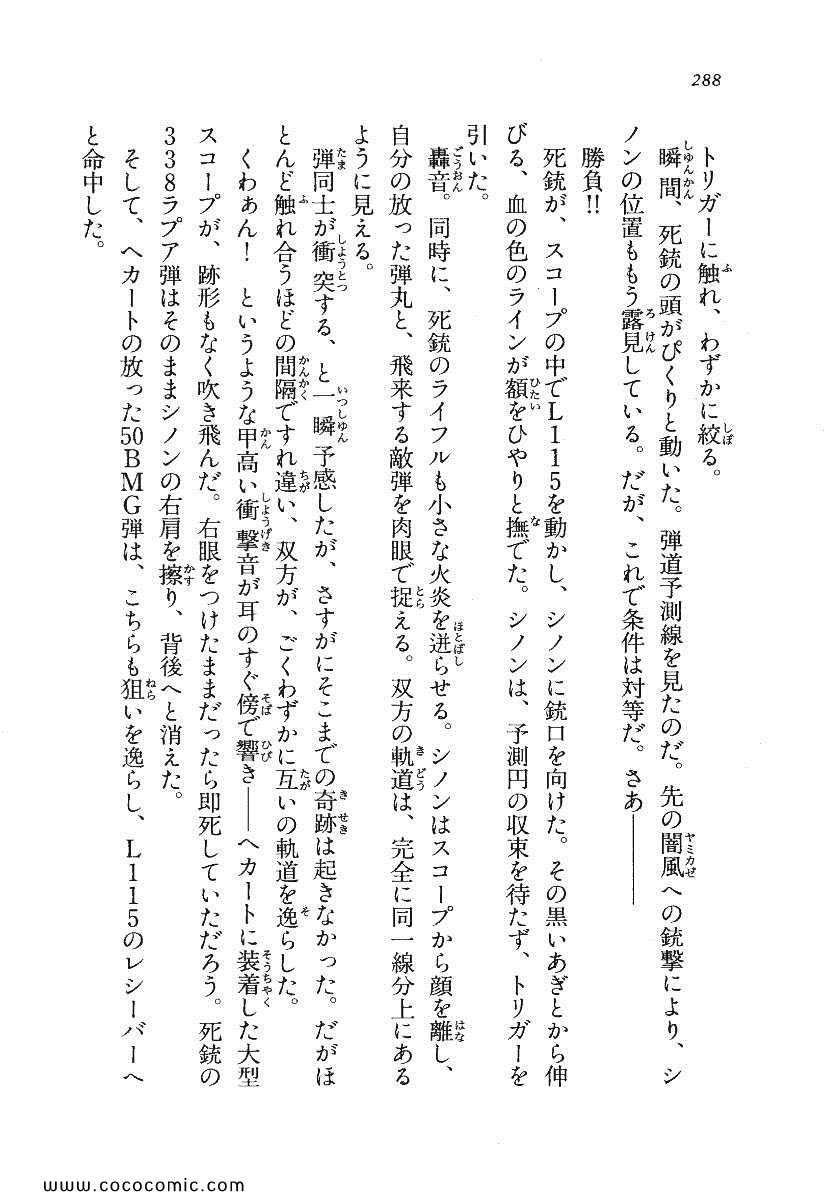 288
トリガーに触れ、わずかに絞る。
瞬間、死銃の頭がぴくりと動いた。弾道予測線を見たのだ。先の闇風への銃撃により、シ
ノンの位置ももう露見している。だが、これで条件は対等だ。さあ――――
勝負!!
死銃が、スコープの中でL115を動かし、シノンに銃口を向けた。その黒いあぎとから伸
びる、血の色のラインが額をひやりと撫でた。シノンは、予測円の収束を待たず、トリガーを
引いた。
轟音。同時に、死銃のライフルも小さな火炎を迸らせる。シノンはスコープから顔を離し、
自分の放った弾丸と、飛来する敵弾を肉眼で捉える。双方の軌道は、完全に同一線分上にある
ように見える。
弾同士が衝突する、と一瞬予感したが、さすがにそこまでの奇跡は起きなかった。だがほ
とんど触れ合うほどの間隔ですれ違い、双方が、ごくわずかに互いの軌道を逸らした。
くわぁん！　というような甲高い衝撃音が耳のすぐ傍で響き――ヘカートに装着した大型
スコープが、跡形もなく吹き飛んだ。右眼をつけたままだったら即死していただろう。死銃の
338ラプア弾はそのままシノンの右肩を擦り、背後へと消えた。
そして、ヘカートの放った50BMG弾は、こちらも狙いを逸らし、L115のレシーバーへ
と命中した。
www.cococomic.com